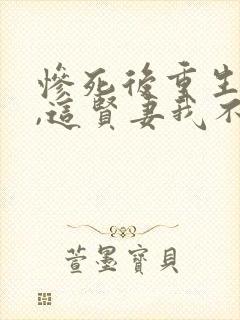 慘死後重生
,這賢妻我不
萱墨寶貝